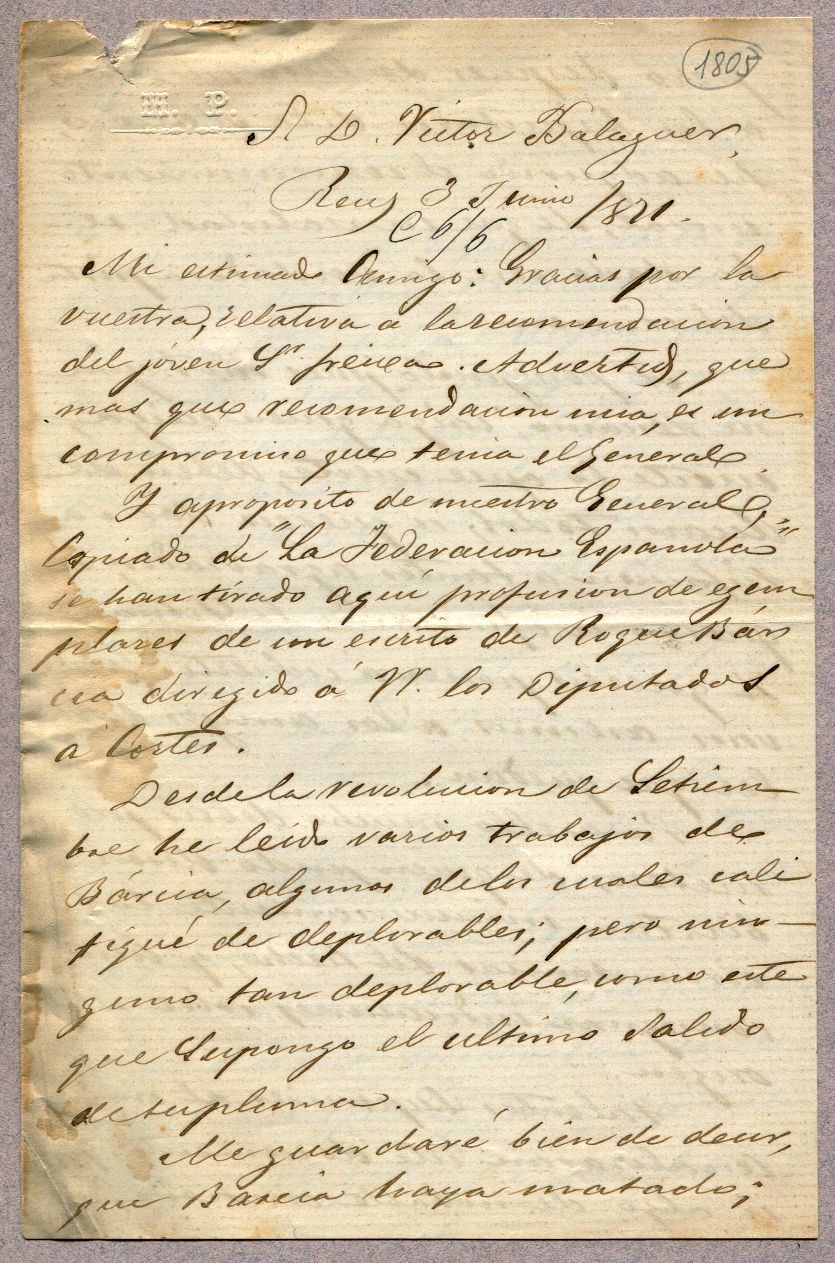 1805
M. P.
A D. Victor Balaguer,
Reus 3 Junio 1871.
C 6/6
Mi estimado Amigo: Gracias por la
vuestra, relativa a la recomendacion
del jóven Sr. freixa. Advertid, que
mas que recomendacion mia, es un
compromiso que tenia el General
Y aproposito de nuestro General,
Copiado de "La Federacion Española"
se han tirado aquí profusion de egem
plares de un escrito de Roque Bár
cia dirigido á VV. los Diputados
a Cortes.
Desde la revolucion de Setiem
bre he leido varios trabajos de
Bárcia, algunos de los cuales cali
fiqué de deplorables; pero nin-
guno tan deplorable, como este
que Supongo el ultimo Salido
de su pluma.
Me guardaré bien de decir,
que Barcia haya matado;